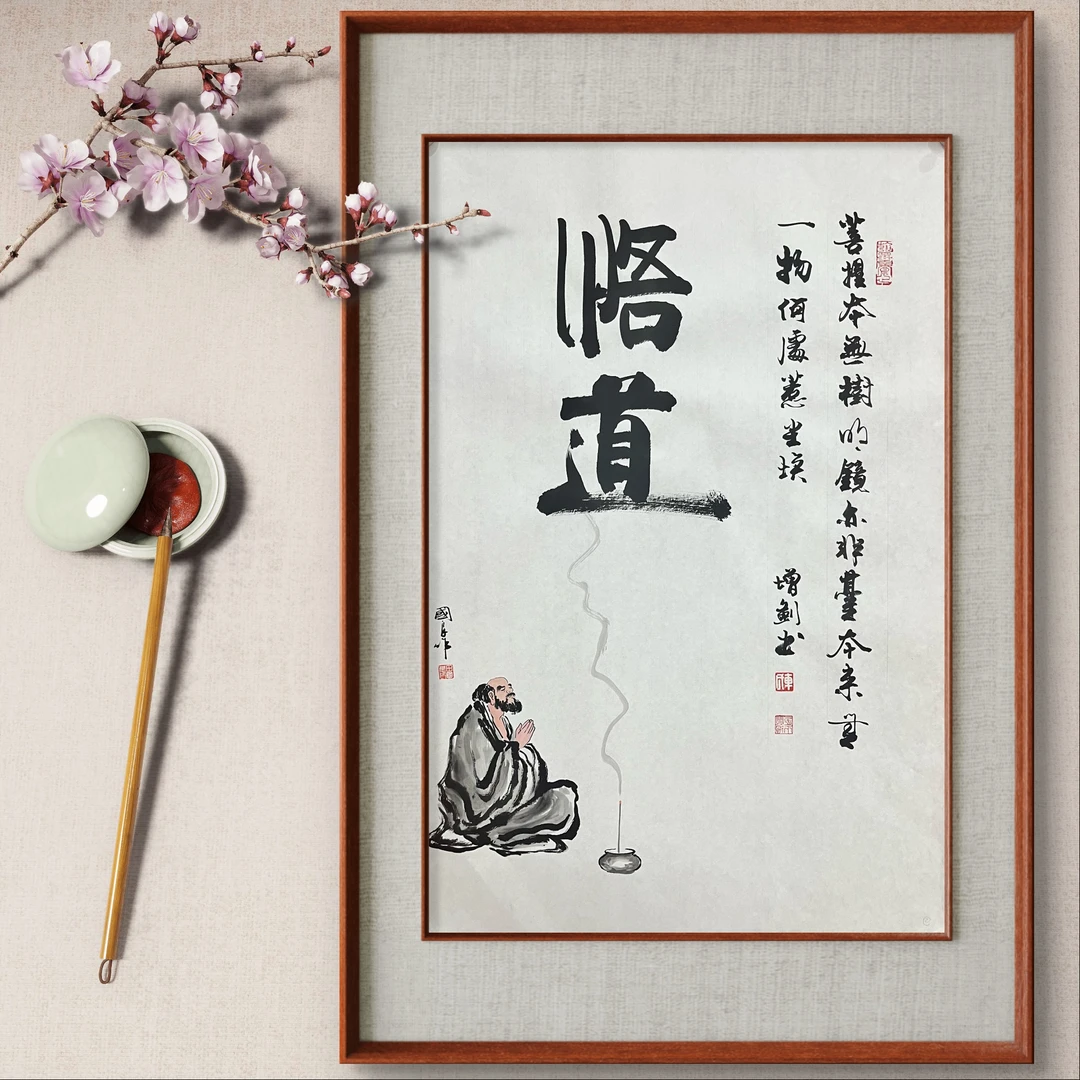 菩提本無樹明鏡亦非臺本来無
一物何處惹尘埃
增劍书
悟道
國 作